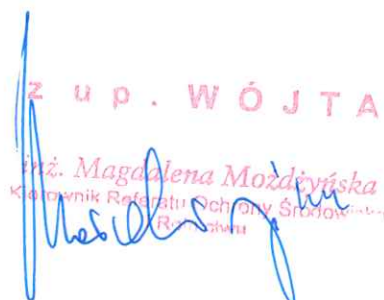 z up. WÓJTA
inż. Magdalena Możdżyńska
Kierownik Referatu Ochrony Środowiska